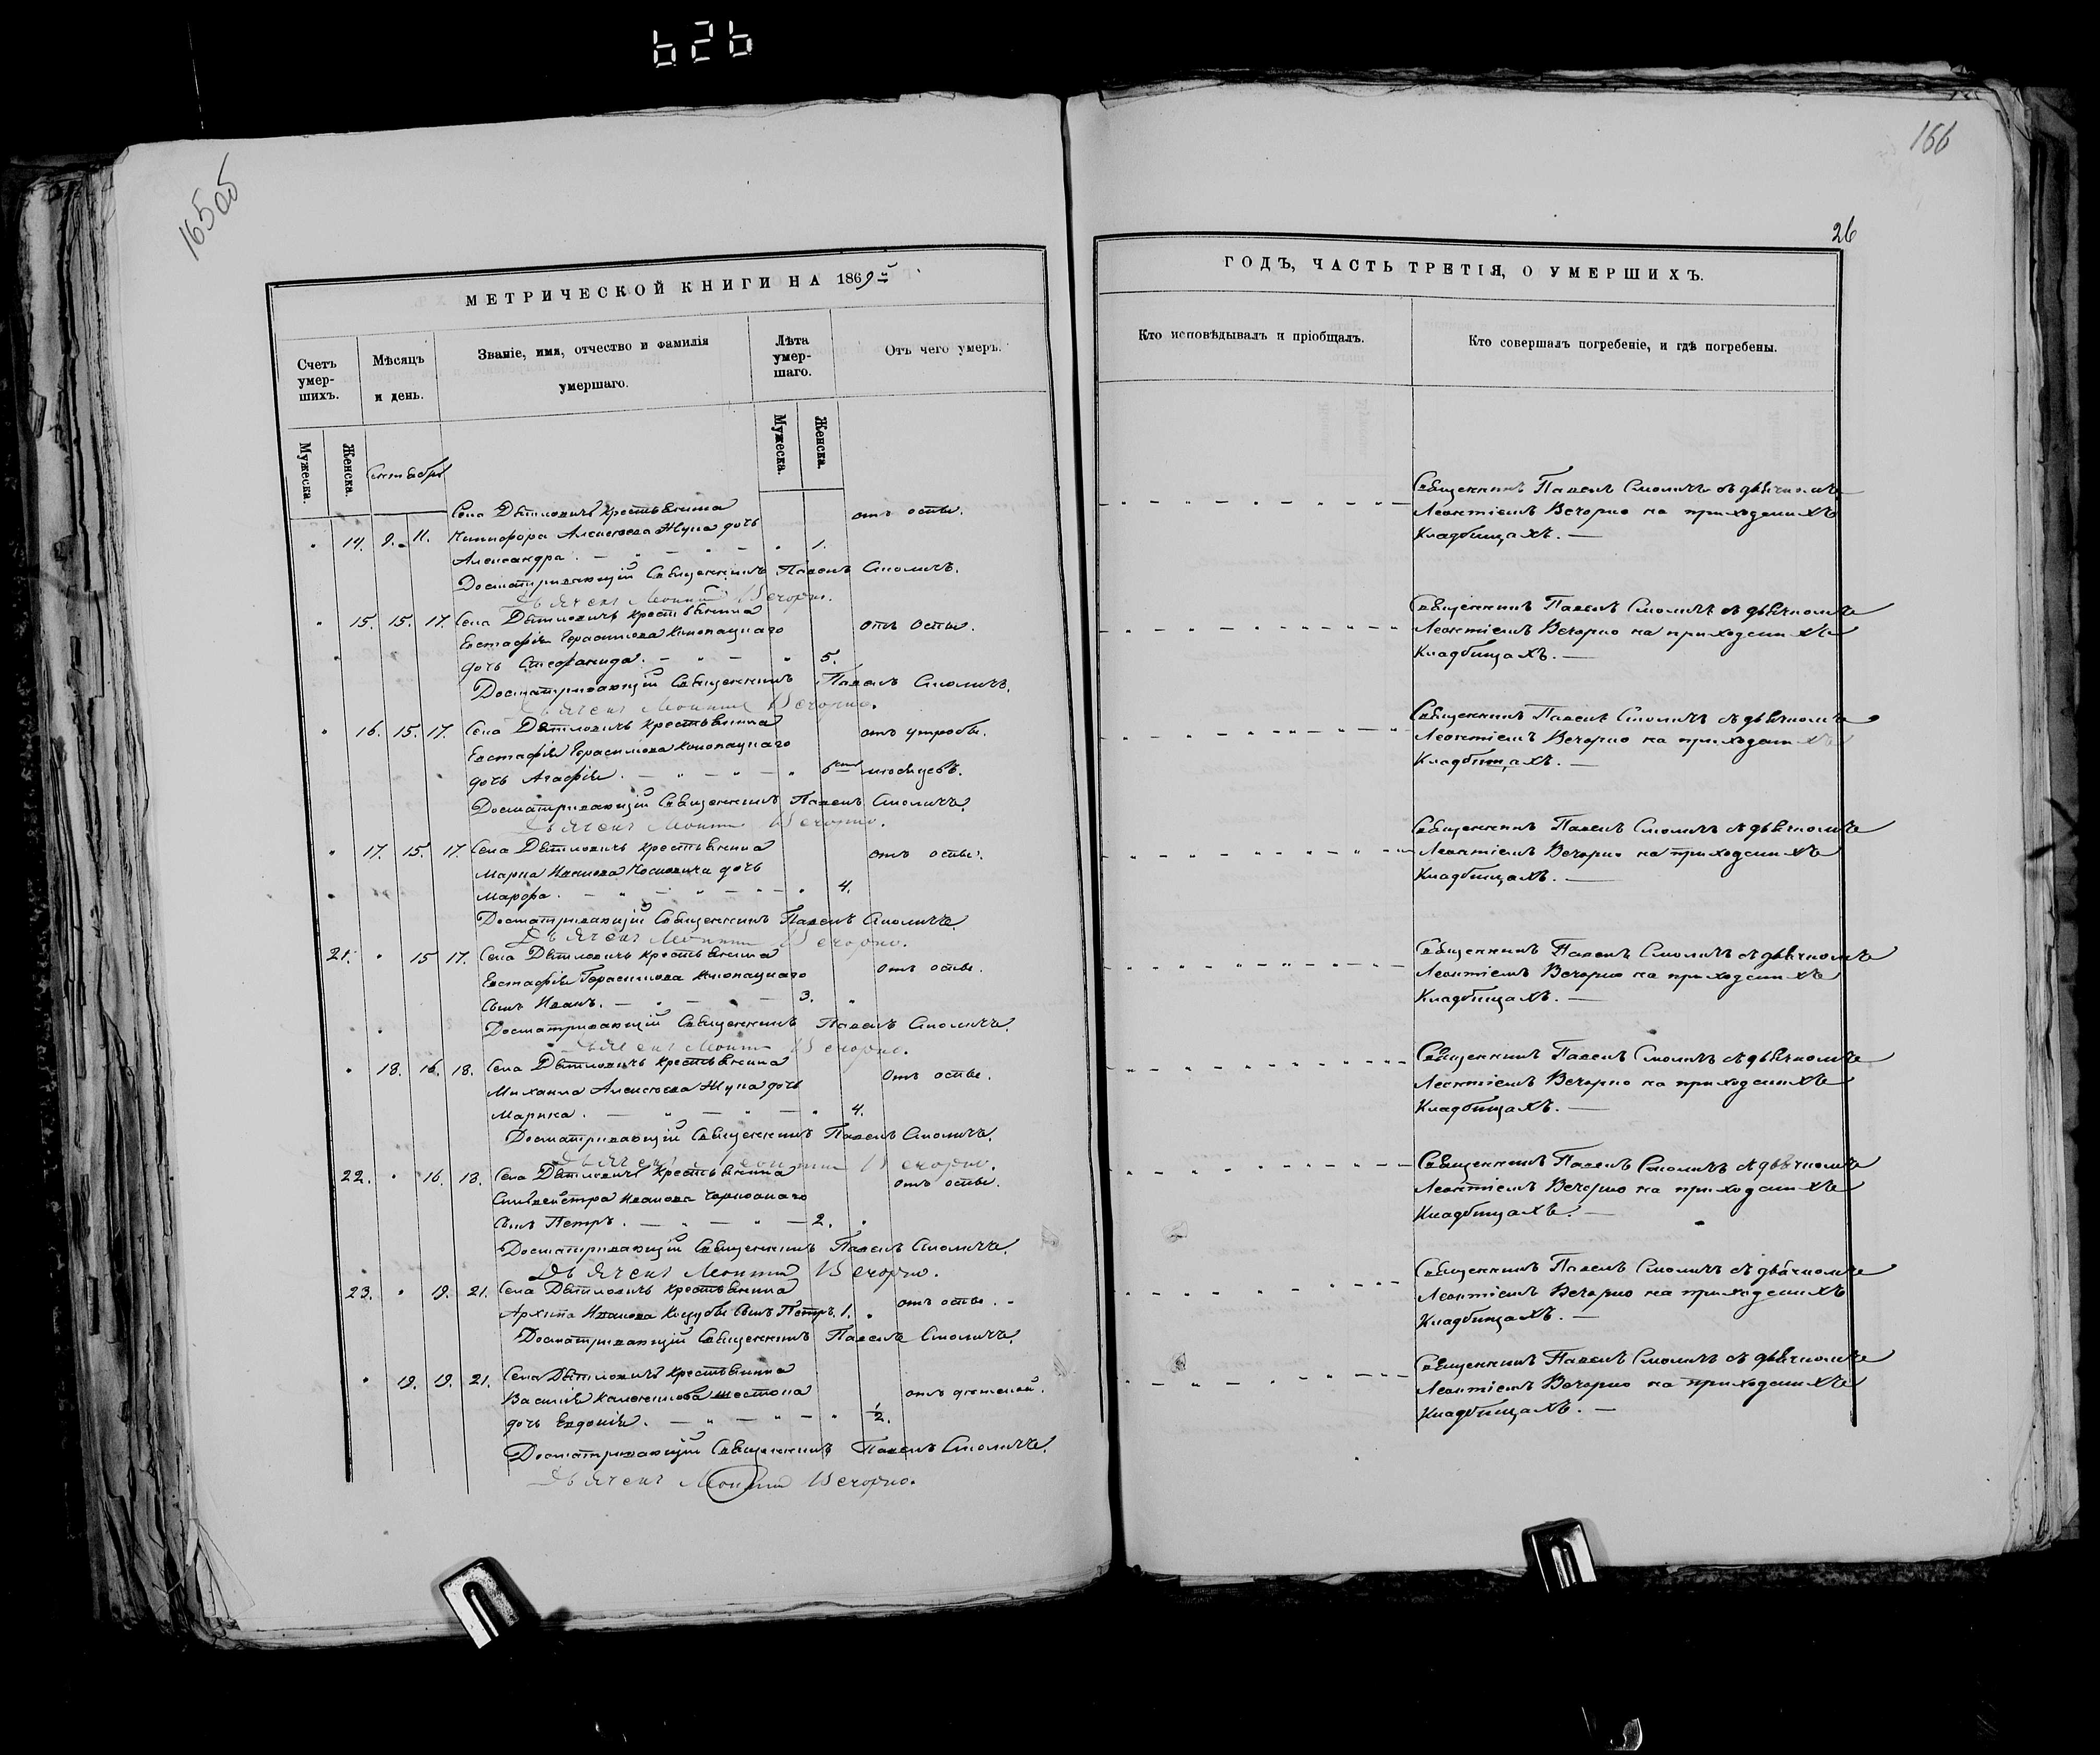 626
165 об
166
26
МЕТРИЧЕСКОЙ КНИГИ НА 1869й
Счетъ умер-шихъ.
Мѣсяцъ и день.
Званіе, имя, отчество и фамилія умершаго.
Лѣта умер-шаго.
Отъ чего умеръ.
Мужеска.
Женска.
Сентября
Мужеска.
Женска.
Села Дѣтловичъ крестьянина
14. 9. 11. Никифора Алексѣева Жука дочь
Александра. 1. отъ оспы.
Досматривающій Священникъ Павелъ Смоличъ.
Дьячекъ Леонтій Вечорко.
15. 15. 17. Села Дѣтловичъ крестьянина
Евстафія Герасимова дочь Стефанида. 5. отъ оспы.
Досматривающій Священникъ Павелъ Смоличъ.
Дьячекъ Леонтій Вечорко.
16. 15. 17. Села Дѣтловичъ крестьянина
Евстафія Герасимова
дочь Агафія. 6 мѣсяцевъ. отъ утробы.
Досматривающій Священникъ Павелъ Смоличъ.
Дьячекъ Леонтій Вечорко.
17. 15. 17. Села Дѣтловичъ крестьянина
Марка Иванова дочь
Марфа. 4. отъ оспы.
Досматривающій Священникъ Павелъ Смоличъ.
Дьячекъ Леонтій Вечорко.
21. 15 17. Села Дѣтловичъ крестьянина
Евстафія Герасимова
сынъ Иванъ. 3. отъ оспы.
Досматривающій Священникъ Павелъ Смоличъ.
Дьячекъ Леонтій Вечорко.
18. 16. 18. Села Дѣтловичъ крестьянина
Михаила Алексѣева Жука дочь
Марина. 4. отъ оспы.
Досматривающій Священникъ Павелъ Смоличъ.
Дьячекъ Леонтій Вечорко.
22. 16. 18. Села Дѣтловичъ крестьянина
Сильвестра Иванова
сынъ Петръ. 2. отъ оспы.
Досматривающій Священникъ Павелъ Смоличъ.
Дьячекъ Леонтій Вечорко.
23. 19. 21. Села Дѣтловичъ крестьянина
Архипа Иванова сынъ Петръ. 1. отъ оспы.
Досматривающій Священникъ Павелъ Смоличъ.
19. 19. 21. Села Дѣтловичъ крестьянина
Василія
дочь Евдокія. 1/2.
Досматривающій Священникъ Павелъ Смоличъ.
Дьячекъ Леонтій Вечорко.
ГОДЪ, ЧАСТЬ ТРЕТІЯ, О УМЕРШИХЪ.
Кто исповѣдывалъ и пріобщалъ.
Кто совершалъ погребеніе, и гдѣ погребены.
Священникъ Павелъ Смоличъ съ дьячкомъ
Леонтіемъ Вечорко на приходскихъ
кладбищахъ.
Священникъ Павелъ Смоличъ съ дьячкомъ
Леонтіемъ Вечорко на приходскихъ
кладбищахъ.
Священникъ Павелъ Смоличъ съ дьячкомъ
Леонтіемъ Вечорко на приходскихъ
кладбищахъ.
Священникъ Павелъ Смоличъ съ дьячкомъ
Леонтіемъ Вечорко на приходскихъ
кладбищахъ.
Священникъ Павелъ Смоличъ съ дьячкомъ
Леонтіемъ Вечорко на приходскихъ
кладбищахъ.
Священникъ Павелъ Смоличъ съ дьячкомъ
Леонтіемъ Вечорко на приходскихъ
кладбищахъ.
Священникъ Павелъ Смоличъ съ дьячкомъ
Леонтіемъ Вечорко на приходскихъ
кладбищахъ.
Священникъ Павелъ Смоличъ съ дьячкомъ
Леонтіемъ Вечорко на приходскихъ
кладбищахъ.
Священникъ Павелъ Смоличъ съ дьячкомъ
Леонтіемъ Вечорко на приходскихъ
кладбищахъ.